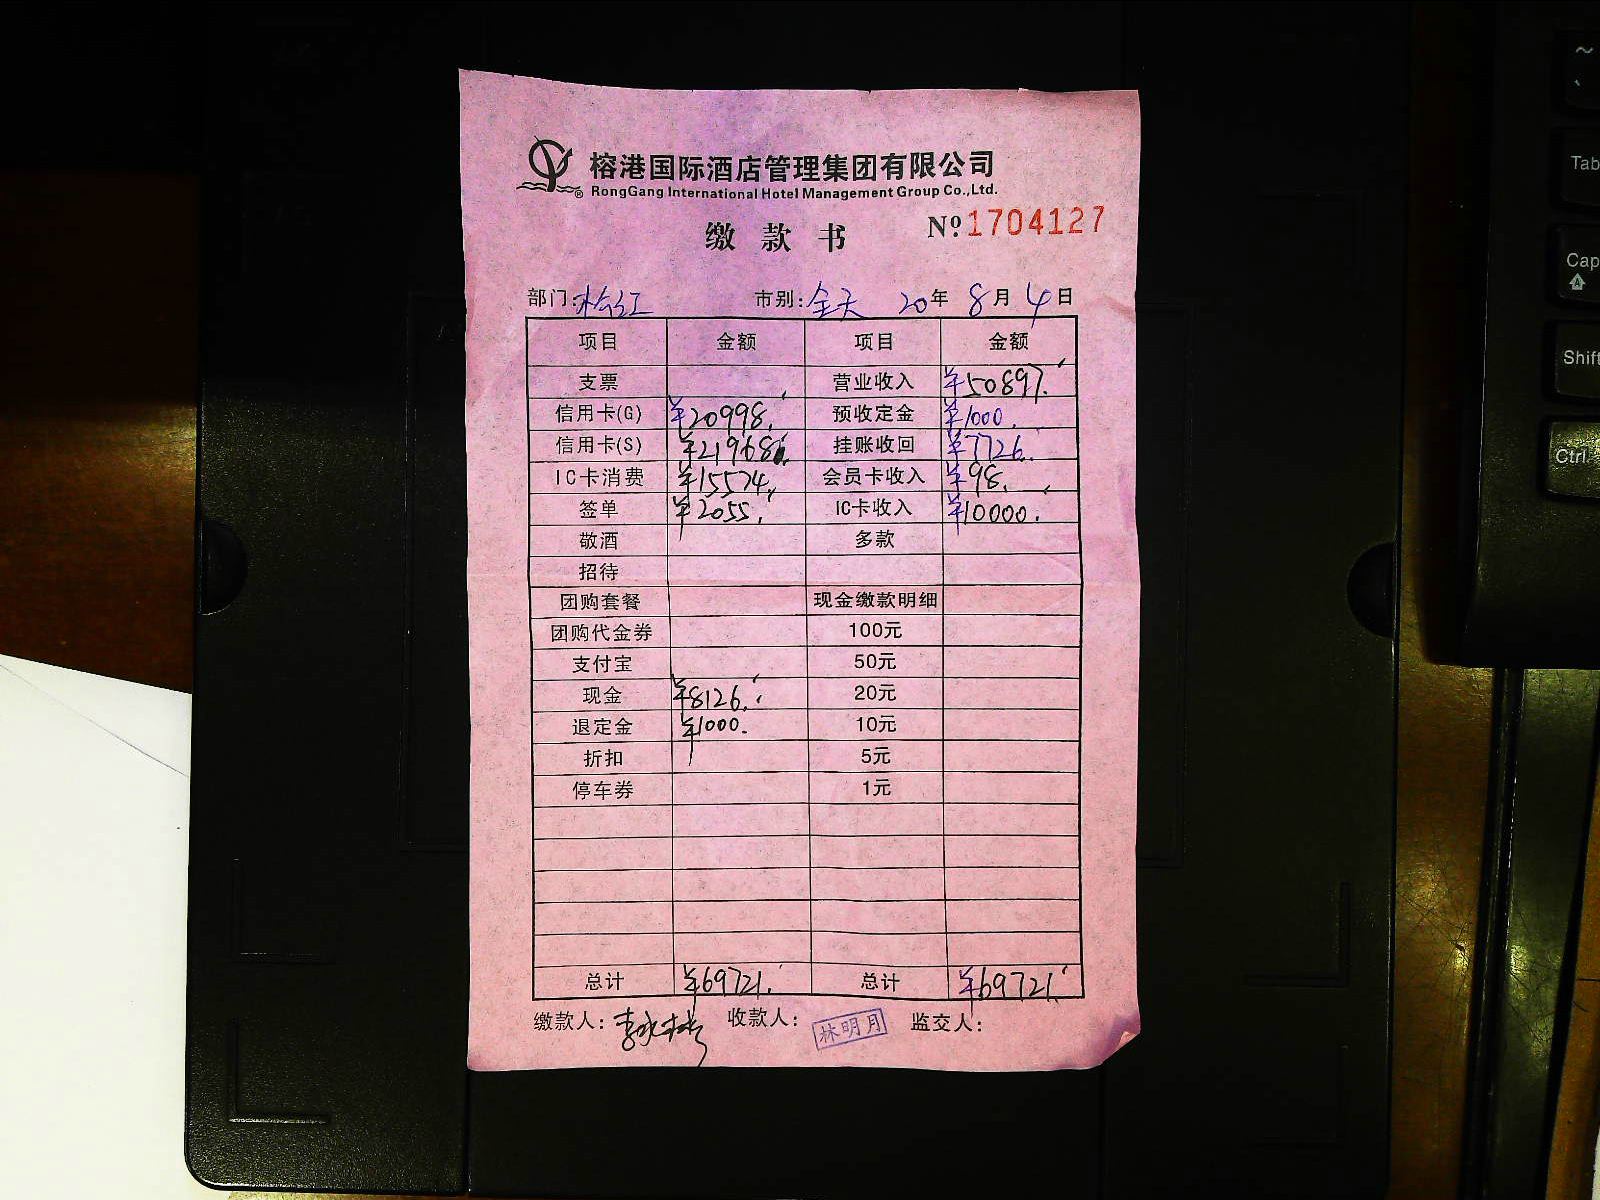 榕港国际酒店管理集团有限公司
®RongGang International Hotel Management Group Co.,Ltd.
缴款书 №1704127
部门:松江 市别:全天 20年 8月 4日
项目 金额 项目 金额
支票 营业收入 ¥50897.
信用卡(G) ¥20998. 预收定金 ¥1000.
信用卡(S) ¥21968. 挂账收回 ¥7726.
IC卡消费 ¥15574. 会员卡收入 ¥98.
签单 ¥2055. IC卡收入 ¥10000.
敬酒 多款
招待
团购套餐 现金缴款明细
团购代金券 100元
支付宝 50元
现金 ¥8126. 20元
退定金 ¥1000. 10元
折扣 5元
停车券 1元
总计 ¥69721. 总计 ¥69721.
缴款人: 收款人: 林明月 监交人:
~
Tab
Cap
Shift
Ctrl